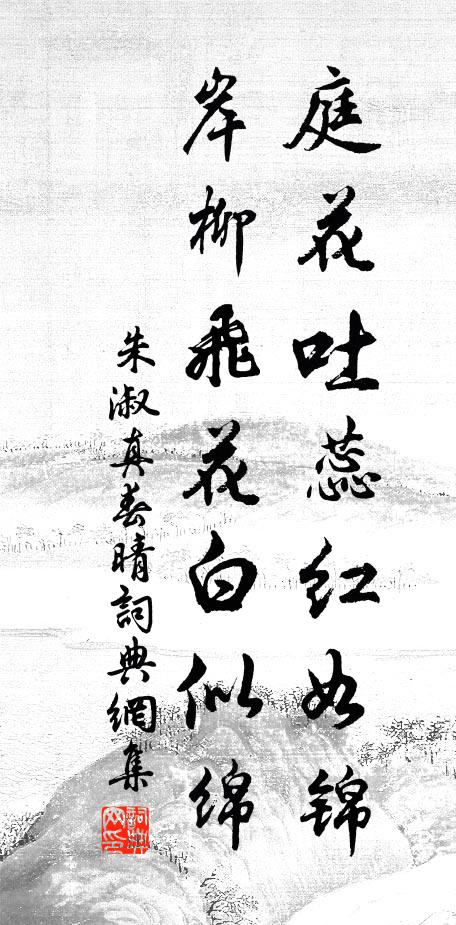 庭花吐蕊红如锦
岸柳飛花白似绵
朱淑真春晴詞典網集